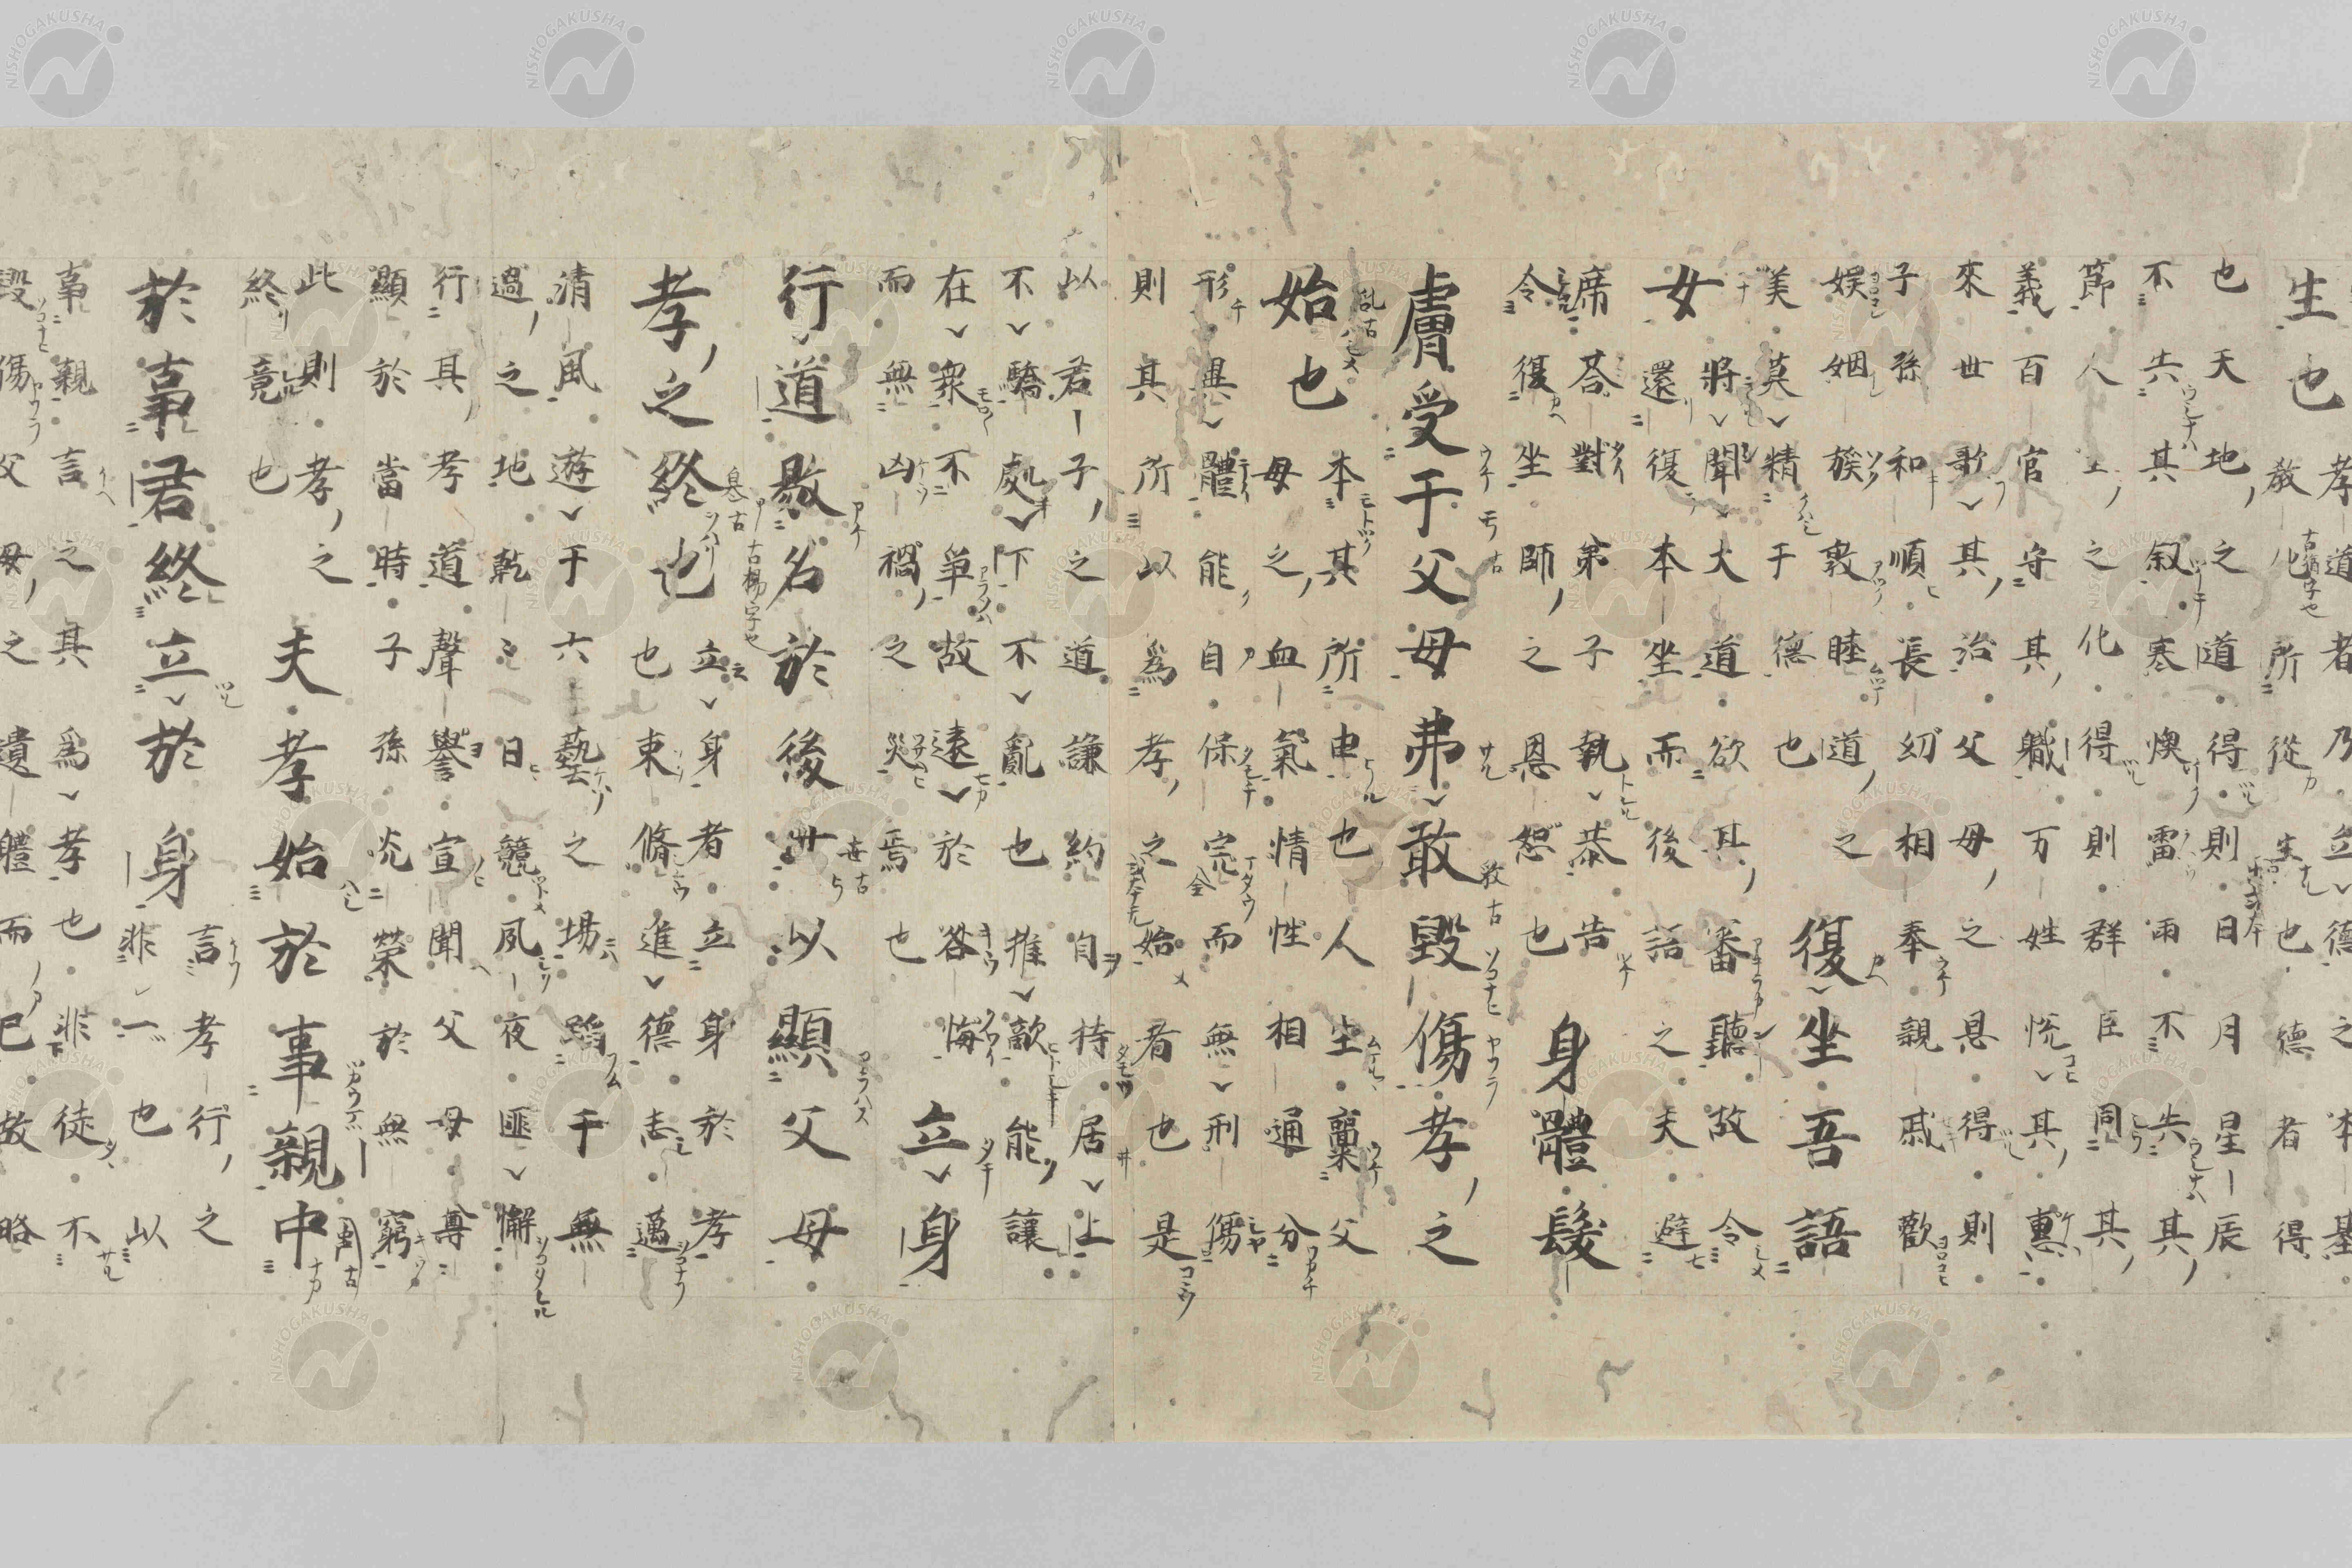 生也
孝道者乃立德之本基
教化所從生也德者得
也天地之道得則日月星辰
不失其叙寒燠雷雨不失其
節人主之化得則群臣同其
義百官守其職万姓悦其惠
來世歌其治父母之恩得則
子孫和順長幼相奉親戚歡
娯姻族敦睦道之
美莫精于德也
復坐吾語
女
將聞大道欲其審聽故令
還復本坐而後語之夫避
席荅對弟子執恭告
令復坐師之恩恕也
身體髮
膚受于父母弗敢毀傷孝之
始也
本其所由也人生稟父
母之血氣情性相通分
形異體能自保完而無刑傷
則其所以爲孝之始者也是
以君子之道謙約自持居上
不驕處下不亂也推敵能讓
在衆不爭故遠於咎悔
而無凶禍之災焉也
立身
行道敭名於後世以顯父母
孝之終也
立身者立身於孝
也束脩進德志邁
清風遊于六藝之場蹈于無
過之地乾〻日競夙夜匪懈
行其孝道聲譽宣聞父母尊
顯於當時子孫光榮於無窮
此則孝之
終竟也
夫孝始於事親中
於事君終立於身
言孝行之
非一也以
事親言之其爲孝也非徒不
毀傷父母之遺體而已故略